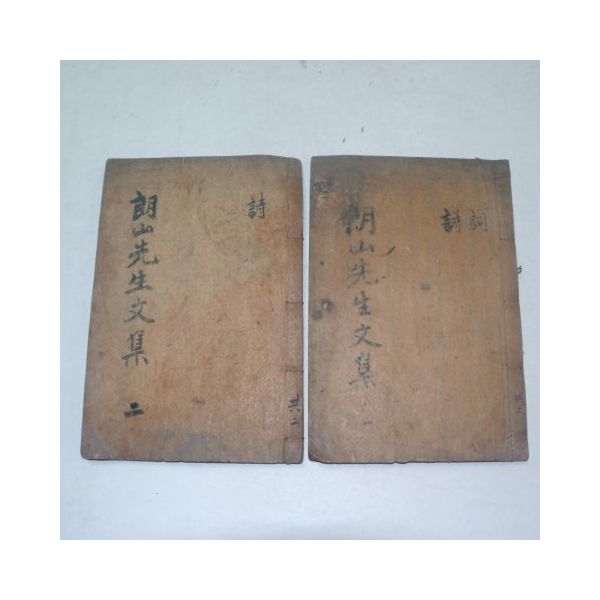 詞
詩
朗山先生文集 一
詩
朗山先生文集 二
共二